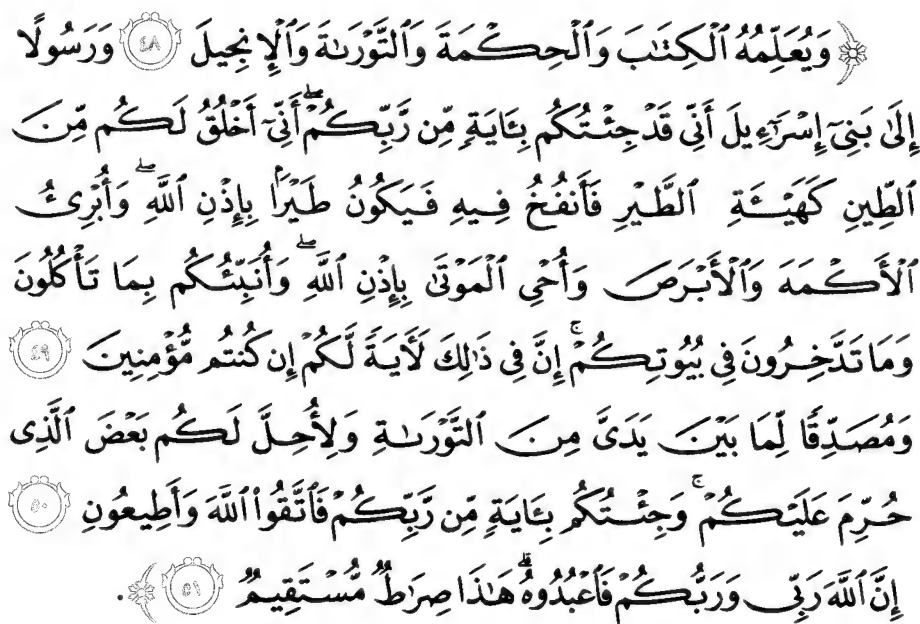 ﴿ وَيُعَلِّمُهُ ٱلْكِتَٰبَ وَٱلْحِكْمَةَ وَٱلتَّوْرَىٰةَ وَٱلْإِنجِيلَ ٤٨ وَرَسُولًا
إِلَىٰ بَنِىٓ إِسْرَٰٓءِيلَ أَنِّى قَدْ جِئْتُكُم بِـَٔايَةٍ مِّن رَّبِّكُمْ ۖ أَنِّىٓ أَخْلُقُ لَكُم مِّنَ
ٱلطِّينِ كَهَيْـَٔةِ ٱلطَّيْرِ فَأَنفُخُ فِيهِ فَيَكُونُ طَيْرًۢا بِإِذْنِ ٱللَّهِ ۖ وَأُبْرِئُ
ٱلْأَكْمَهَ وَٱلْأَبْرَصَ وَأُحْىِ ٱلْمَوْتَىٰ بِإِذْنِ ٱللَّهِ ۖ وَأُنَبِّئُكُم بِمَا تَأْكُلُونَ
وَمَا تَدَّخِرُونَ فِى بُيُوتِكُمْ ۚ إِنَّ فِى ذَٰلِكَ لَـَٔايَةً لَّكُمْ إِن كُنتُم مُّؤْمِنِينَ ٤٩
وَمُصَدِّقًا لِّمَا بَيْنَ يَدَىَّ مِنَ ٱلتَّوْرَىٰةِ وَلِأُحِلَّ لَكُم بَعْضَ ٱلَّذِى
حُرِّمَ عَلَيْكُمْ ۚ وَجِئْتُكُم بِـَٔايَةٍ مِّن رَّبِّكُمْ فَٱتَّقُوا۟ ٱللَّهَ وَأَطِيعُونِ ٥٠
إِنَّ ٱللَّهَ رَبِّى وَرَبُّكُمْ فَٱعْبُدُوهُ ۗ هَٰذَا صِرَٰطٌ مُّسْتَقِيمٌ ٥١ ﴾ .